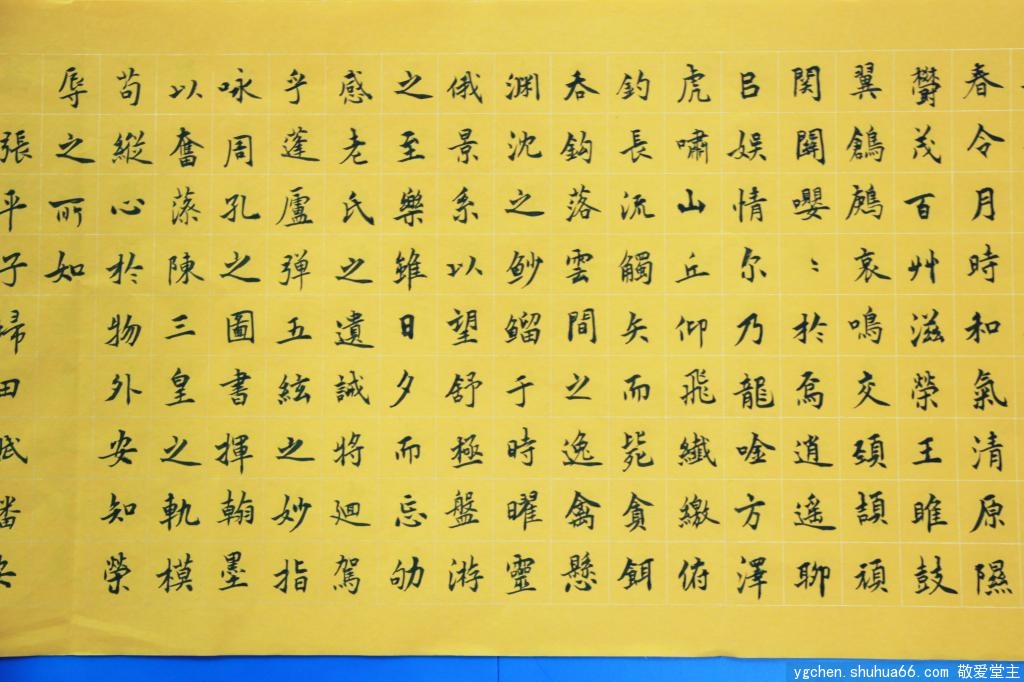 春令月時和氣清原隰
鬱茂百艸滋榮王雎鼓
翼鶬鶊哀鳴交頸頡頏
関關嚶〻於焉逍遙聊
吕娛情尔乃龍唫方澤
虎嘯山丘仰飛纖繳俯
釣長流觸矢而斃貪餌
吞鈎落雲間之逸禽懸
渊沈之魦鰡于時曜靈
俄景系以望舒極盤游
之至樂雖日夕而忘劬
感老氏之遺誡將廻駕
乎蓬廬弹五絃之妙指
咏周孔之圖書揮翰墨
以奮藻陳三皇之軌模
苟縱心於物外安知榮
辱之所如
張平子歸田賦潘安
ygchen.shuhua66.com 敬爱堂主